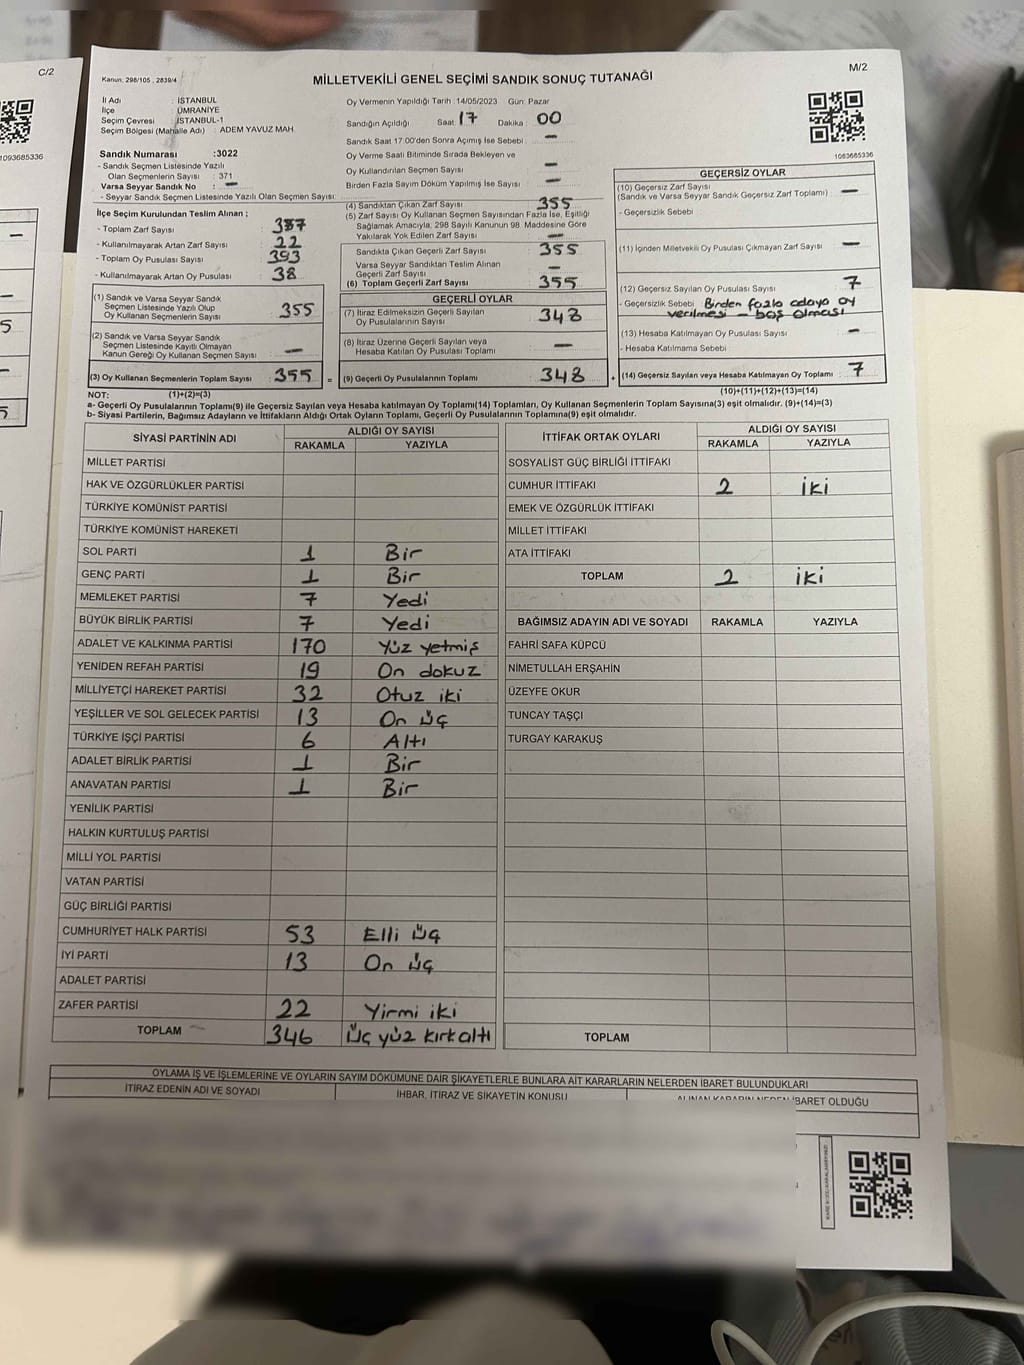 C/2
1093685336
5
5
Kanun: 298/105 , 2839/4
M/2
MİLLETVEKİLİ GENEL SEÇİMİ SANDIK SONUÇ TUTANAĞI
İl Adı : İSTANBUL
İlçe : ÜMRANİYE
Seçim Çevresi : İSTANBUL-1
Seçim Bölgesi (Mahalle Adı) : ADEM YAVUZ MAH.
Sandık Numarası :3022
- Sandık Seçmen Listesinde Yazılı
Olan Seçmenlerin Sayısı : 371
Varsa Seyyar Sandık No : —
- Seyyar Sandık Seçmen Listesinde Yazılı Olan Seçmen Sayısı:
Oy Vermenin Yapıldığı Tarih :14/05/2023 Gün: Pazar
Sandığın Açıldığı Saat: 17 Dakika : 00
Sandık Saat 17:00'den Sonra Açımış İse Sebebi : —
Oy Verme Saati Bitiminde Sırada Bekleyen ve
Oy Kullandırılan Seçmen Sayısı —
Birden Fazla Sayım Döküm Yapılmış İse Sayısı —
1093685336
İlçe Seçim Kurulundan Teslim Alınan ;
- Toplam Zarf Sayısı : 387
- Kullanılmayarak Artan Zarf Sayısı : 22
- Toplam Oy Pusulası Sayısı : 393
- Kullanılmayarak Artan Oy Pusulası : 38
(1) Sandık ve Varsa Seyyar Sandık
Seçmen Listesinde Yazılı Olup
Oy Kullanan Seçmenlerin Sayısı : 355
(2) Sandık ve Varsa Seyyar Sandık
Seçmen Listesinde Kayıtlı Olmayan
Kanun Gereği Oy Kullanan Seçmen Sayısı : —
(3) Oy Kullanan Seçmenlerin Toplam Sayısı : 355 =
(4) Sandıktan Çıkan Zarf Sayısı 355
(5) Zarf Sayısı Oy Kullanan Seçmen Sayısından Fazla İse, Eşitliği
Sağlamak Amacıyla, 298 Sayılı Kanunun 98. Maddesine Göre
Yakılarak Yok Edilen Zarf Sayısı : —
Sandıkta Çıkan Geçerli Zarf Sayısı : 355
Varsa Seyyar Sandıktan Teslim Alınan
Geçerli Zarf Sayısı : —
(6) Toplam Geçerli Zarf Sayısı : 355
GEÇERLİ OYLAR
(7) İtiraz Edilmeksizin Geçerli Sayılan
Oy Pusulalarının Sayısı : 348
(8) İtiraz Üzerine Geçerli Sayılan veya
Hesaba Katılan Oy Pusulası Toplamı : —
(9) Geçerli Oy Pusulalarının Toplamı 348 +
GEÇERSİZ OYLAR
(10) Geçersiz Zarf Sayısı
(Sandık ve Varsa Seyyar Sandık Geçersiz Zarf Toplamı) —
- Geçersizlik Sebebi :
(11) İçinden Milletvekili Oy Pusulası Çıkmayan Zarf Sayısı —
(12) Geçersiz Sayılan Oy Pusulası Sayısı 7
- Geçersizlik Sebebi : Birden fazla adaya oy
verilmesi — boş olması
(13) Hesaba Katılmayan Oy Pusulası Sayısı —
- Hesaba Katılmama Sebebi :
(14) Geçersiz Sayılan veya Hesaba Katılmayan Oy Toplamı : 7
NOT: (1)+(2)=(3) (10)+(11)+(12)+(13)=(14)
a- Geçerli Oy Pusulalarının Toplamı(9) ile Geçersiz Sayılan veya Hesaba katılmayan Oy Toplamı(14) Toplamları, Oy Kullanan Seçmenlerin Toplam Sayısına(3) eşit olmalıdır. (9)+(14)=(3)
b- Siyasi Partilerin, Bağımsız Adayların ve İttifakların Aldığı Ortak Oyların Toplamı, Geçerli Oy Pusulalarının Toplamına(9) eşit olmalıdır.
SİYASİ PARTİNİN ADI ALDIĞI OY SAYISI
RAKAMLA YAZIYLA
MİLLET PARTİSİ
HAK VE ÖZGÜRLÜKLER PARTİSİ
TÜRKİYE KOMÜNİST PARTİSİ
TÜRKİYE KOMÜNİST HAREKETİ
SOL PARTİ 1 Bir
GENÇ PARTİ 1 Bir
MEMLEKET PARTİSİ 7 Yedi
BÜYÜK BİRLİK PARTİSİ 7 Yedi
ADALET VE KALKINMA PARTİSİ 170 Yüz yetmiş
YENİDEN REFAH PARTİSİ 19 On dokuz
MİLLİYETÇİ HAREKET PARTİSİ 32 Otuz iki
YEŞİLLER VE SOL GELECEK PARTİSİ 13 On üç
TÜRKİYE İŞÇİ PARTİSİ 6 Altı
ADALET BİRLİK PARTİSİ 1 Bir
ANAVATAN PARTİSİ 1 Bir
YENİLİK PARTİSİ
HALKIN KURTULUŞ PARTİSİ
MİLLİ YOL PARTİSİ
VATAN PARTİSİ
GÜÇ BİRLİĞİ PARTİSİ
CUMHURİYET HALK PARTİSİ 53 Elli üç
İYİ PARTİ 13 On üç
ADALET PARTİSİ
ZAFER PARTİSİ 22 Yirmi iki
TOPLAM 346 Üç yüz kırk altı
İTTİFAK ORTAK OYLARI ALDIĞI OY SAYISI
RAKAMLA YAZIYLA
SOSYALİST GÜÇ BİRLİĞİ İTTİFAKI
CUMHUR İTTİFAKI 2 İki
EMEK VE ÖZGÜRLÜK İTTİFAKI
MİLLET İTTİFAKI
ATA İTTİFAKI
TOPLAM 2 iki
BAĞIMSIZ ADAYIN ADI VE SOYADI RAKAMLA YAZIYLA
FAHRİ SAFA KÜPCÜ
NİMETULLAH ERŞAHİN
ÜZEYFE OKUR
TUNCAY TAŞÇI
TURGAY KARAKUŞ
TOPLAM
OYLAMA İŞ VE İŞLEMLERİNE VE OYLARIN SAYIM DÖKÜMÜNE DAİR ŞİKAYETLERLE BUNLARA AİT KARARLARIN NELERDEN İBARET BULUNDUKLARI
İTİRAZ EDENİN ADI VE SOYADI İHBAR, İTİRAZ VE ŞİKAYETİN KONUSU ALINAN KARARIN NEDEN İBARET OLDUĞU